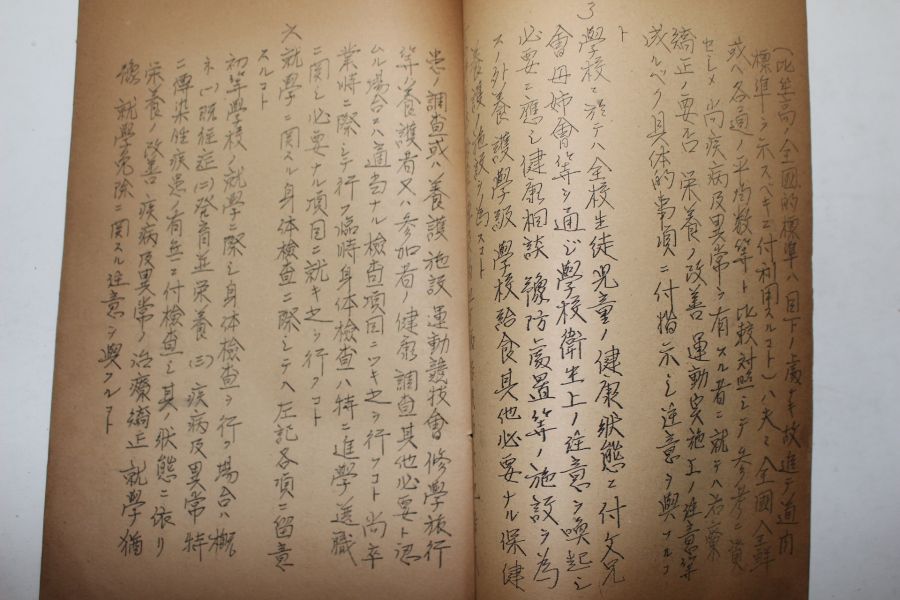 (比坐高ノ全國的標準ハ目下ノ處ナキ故進テ道內
標準ヲ示スベキニ付利用スルコト)ハ夫々全國全鮮
或ハ各道ノ平均數等ト比較對照シテ參考ニ資
セシメ尚疾病及異常ヲ有スル者ニ就テハ治療
矯正ノ要否 栄養ノ改善 運動実施上ノ注意等
成ルベク具体的事項ニ付指示シ注意ヲ與フルコ
ト
3
學校ニ於テハ全校生徒児童ノ健康狀態ニ付父兄
會母姉會等ヲ通ジ學校衛生上ノ注意ヲ喚起シ
必要ニ應ジ健康相談 豫防處置等ノ施設ヲ為
スノ外養護學級 學校給食其他必要ナル保健
養護ノ施設ヲ為スコト
患ノ調査或ハ養護施設 運動競技會 修學旅行
等ノ養護者又ハ参加者ノ健康調査其他必要ト認
ムル場合ニハ適当ナル檢查項目ニツキ之ヲ行フコト尚卒
業時ニ際シテ行フ臨時身体檢查ハ特ニ進學ノ選職
ニ関シ必要ナル項目ニ就キ之ヲ行フコト
六 就學ニ関スル身体檢查ニ際シテハ左記各項ニ留意
スルコト
初等學校ノ就學ニ際シ身体檢查ヲ行フ場合ハ概
ネ(一)既往症(二)発育並栄養(三)疾病及異常特
ニ傳染性疾患ノ有無ニ付檢查シ其ノ狀態ニ依リ
栄養ノ改善、疾病及異常ノ治療矯正 就學猶
豫 就學免除ニ関スル注意ヲ與フルコト